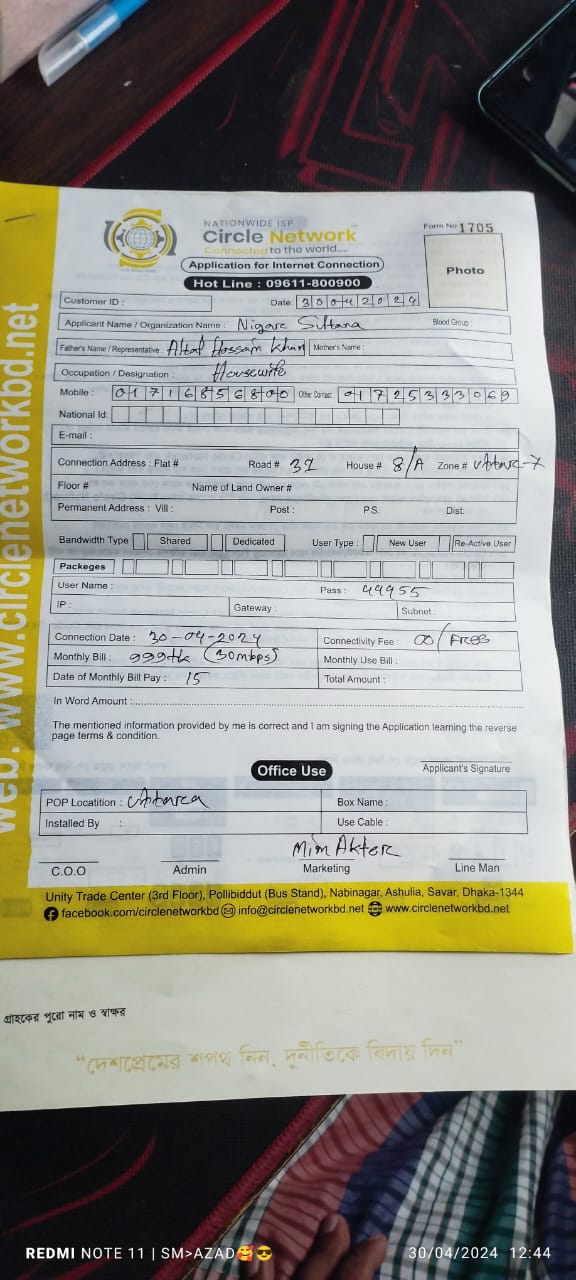 NATIONWIDE ISP
Circle Network
Connected to the world....
Application for Internet Connection
Hot Line : 09611-800900
Form No 1705
Photo
Customer ID :
Date: 30042024
Applicant Name / Organization Name : Nigare Sultana Blood Group :
Father's Name / Representative : Altaf Hossain Khan Mother's Name :
Occupation / Designation : Housewife
Mobile : 01716856800 Other Contact : 01725333069
National Id:
E-mail :
Connection Address : Flat # Road # 32 House # 8/A Zone # -7
Floor # Name of Land Owner #
Permanent Address : Vill : Post : P.S. Dist:
Bandwidth Type Shared Dedicated User Type : New User Re-Active User
Packeges
User Name : Pass : 49955
IP : Gateway : Subnet :
Connection Date : 30-04-2024 Connectivity Fee : 00/FREE
Monthly Bill : 999tk (30mbps) Monthly Use Bill :
Date of Monthly Bill Pay : 15 Total Amount :
In Word Amount :
The mentioned information provided by me is correct and I am signing the Application learning the reverse
page terms & condition.
Applicant's Signature
Office Use
POP Locatition : Box Name :
Installed By : Use Cable :
Mim Akter
C.O.O Admin Marketing Line Man
Unity Trade Center (3rd Floor), Pollibiddut (Bus Stand), Nabinagar, Ashulia, Savar, Dhaka-1344
facebook.com/circlenetworkbd info@circlenetworkbd.net www.circlenetworkbd.net
web: www.circlenetworkbd.net
গ্রাহকের পুরো নাম ও স্বাক্ষর
"দেশপ্রেমের শপথ নিন, দুর্নীতিকে বিদায় দিন"
REDMI NOTE 11 | SM>AZAD🥰😎
30/04/2024 12:44